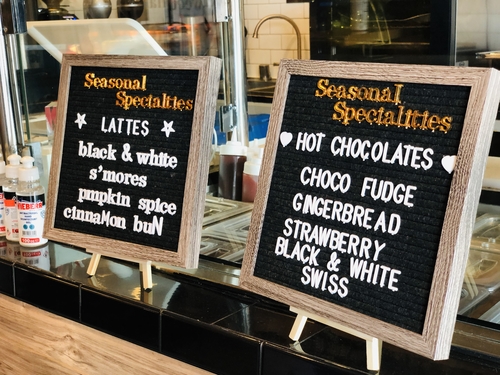 Seasonal
Specialties
LATTES
black & white
s'mores
pumpkin spice
cinnaMon buN
Seasonal
Specialities
HOT CHOCOLATES
CHOCO FUDGE
GINGERBREAD
STRAWBERRY
BLACK & WHITE
SWISS